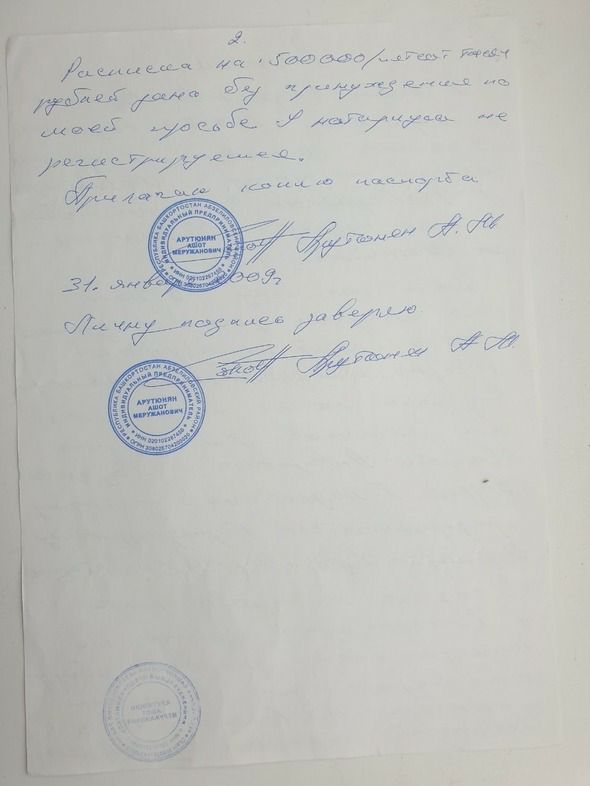 2.
Расписка на 500000/пятсот тысяч
рублей дана без принуждения по
моей просьбе и натариуса не
регистрируется.
Прилагаю копию паспорта
Арутюнян А. М
31. января 2009г
Личну подпись заверяю
Арутюнян А М.
РЕСПУБЛИКА БАШКОРТОСТАН АБЗЕЛИЛОВСКИЙ РАЙОН
ИНДИВИДУАЛЬНЫЙ ПРЕДПРИНИМАТЕЛЬ
АРУТЮНЯН
АШОТ
МЕРУЖАНОВИЧ
ИНН 020102267450
РЕСПУБЛИКА БАШКОРТОСТАН АБЗЕЛИЛОВСКИЙ РАЙОН
ИНДИВИДУАЛЬНЫЙ ПРЕДПРИНИМАТЕЛЬ
АРУТЮНЯН
АШОТ
МЕРУЖАНОВИЧ
ИНН 020102267450